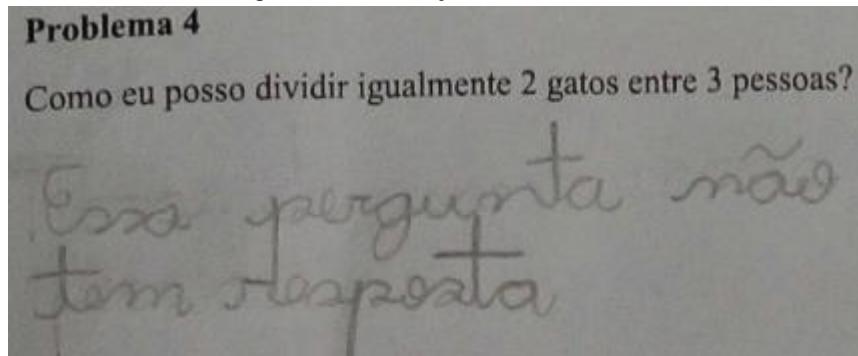 Problema 4
Como eu posso dividir igualmente 2 gatos entre 3 pessoas?
Essa pergunta não
tem resposta